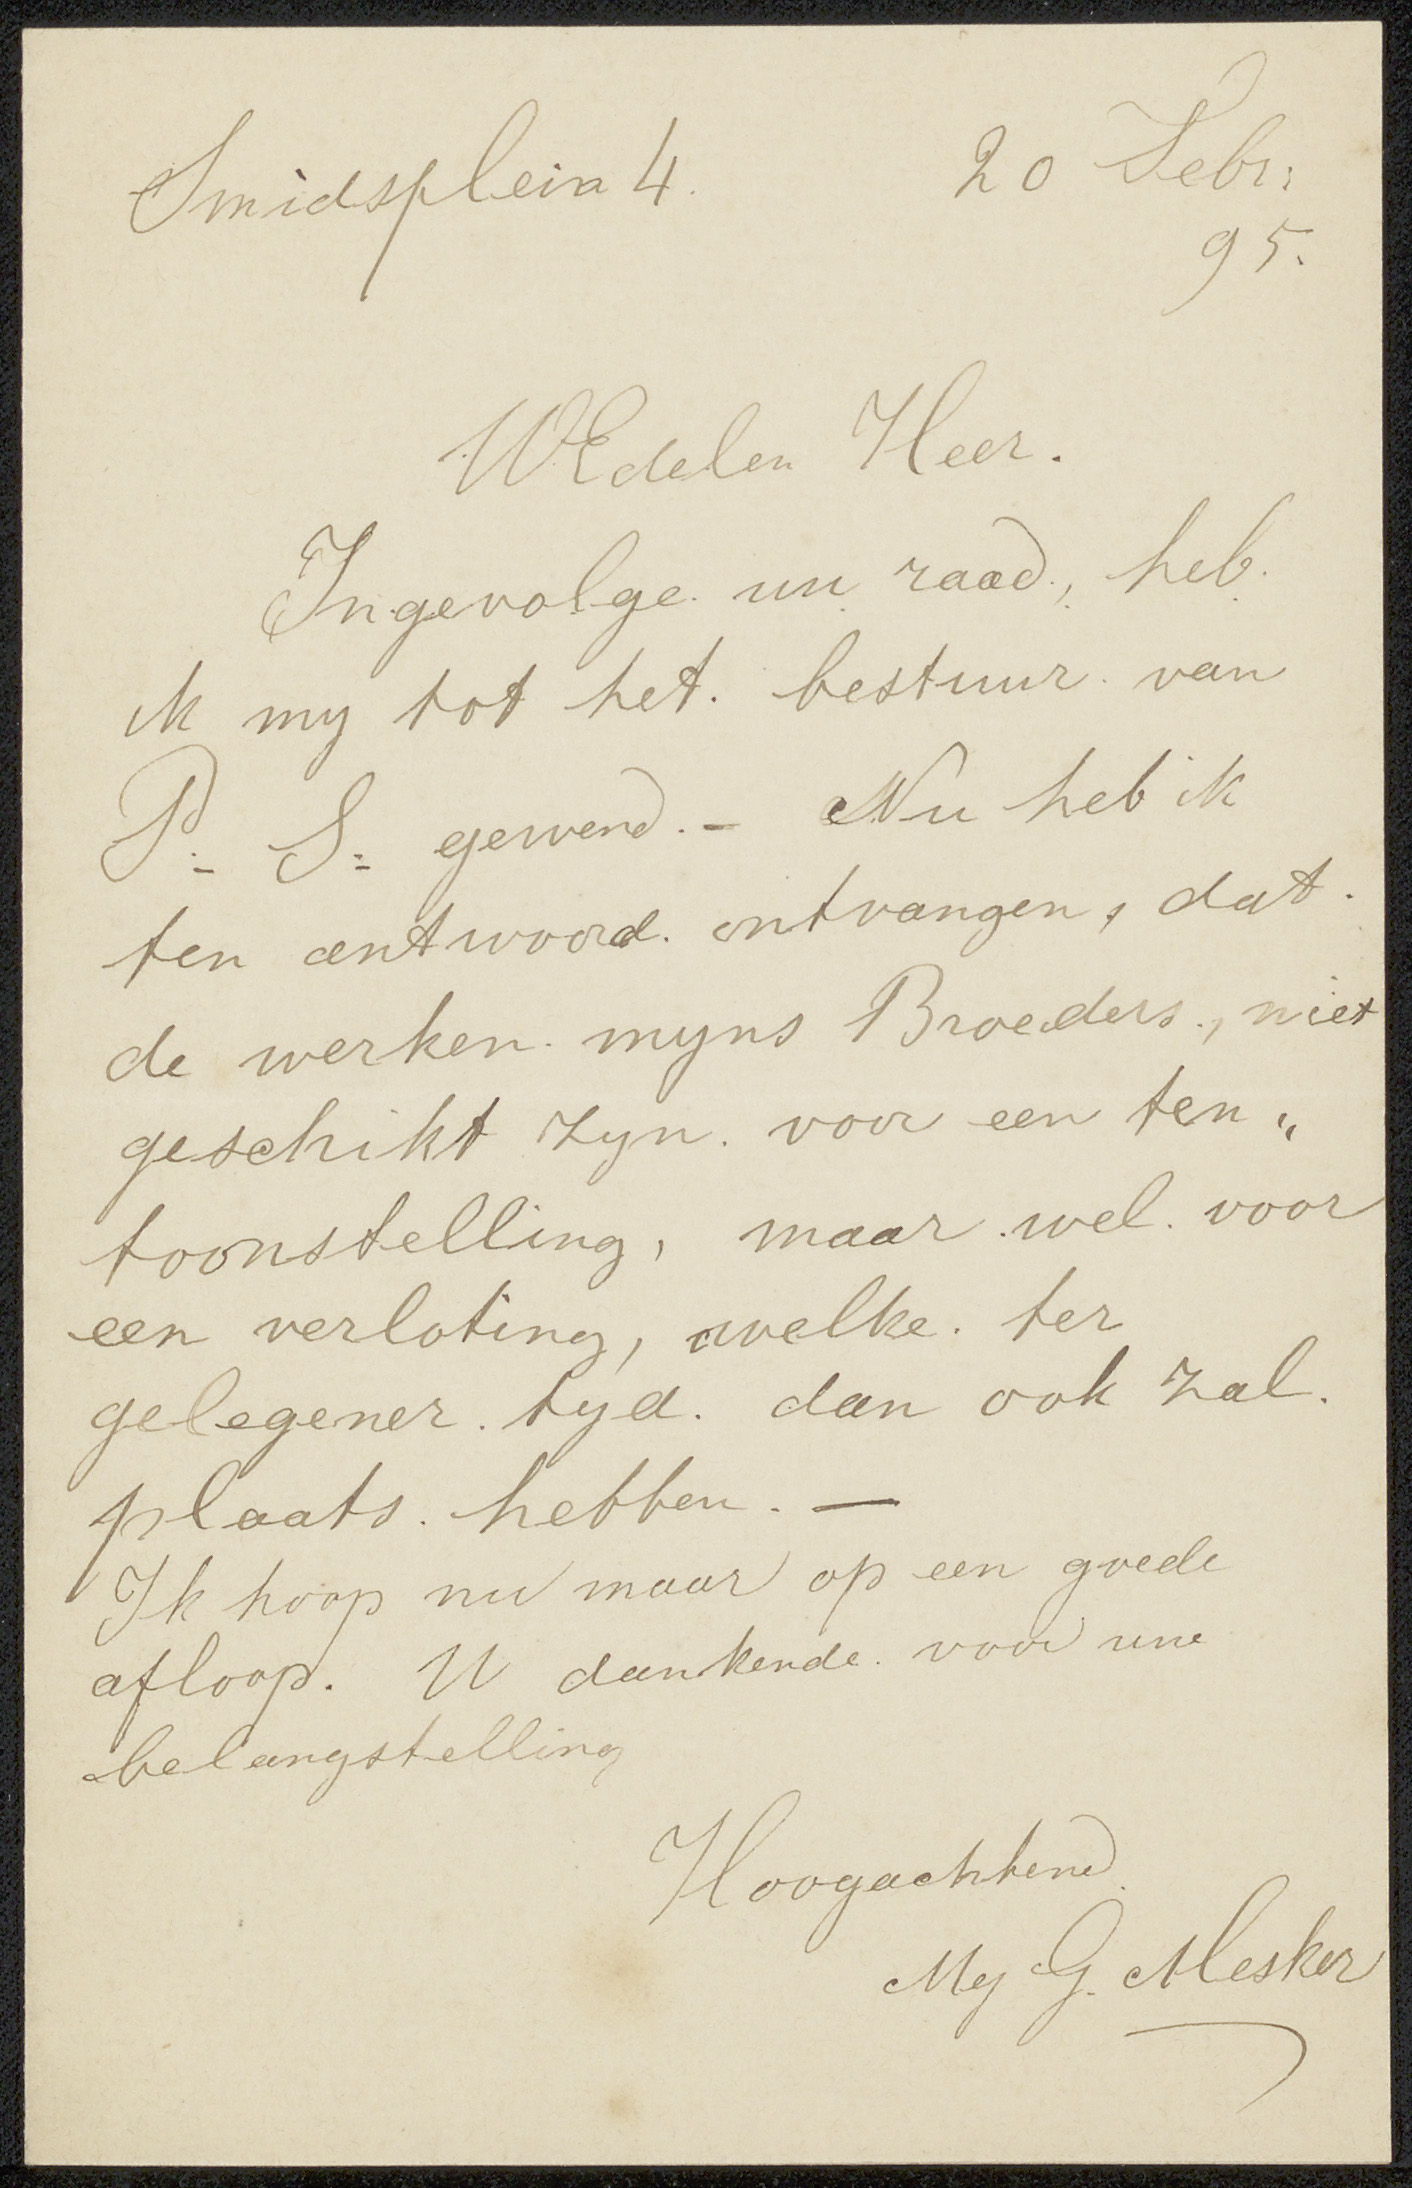 Smidsplein 4. 20 Febr:
95.
WEdelen Heer.
Ingevolge uw raad, heb
ik my tot het bestuur van
P. S. gewend. - Nu heb ik
ten antwoord ontvangen, dat
de werken myns Broeders, niet
geschikt zyn voor een ten„
toonstelling, maar wel voor
een verloting, welke ter
gelegener tyd dan ook zal
plaats hebben. —
Ik hoop nu maar op een goede
afloop. U dankende voor uwe
belangstelling
Hoogachtend
Mej G. Mesker